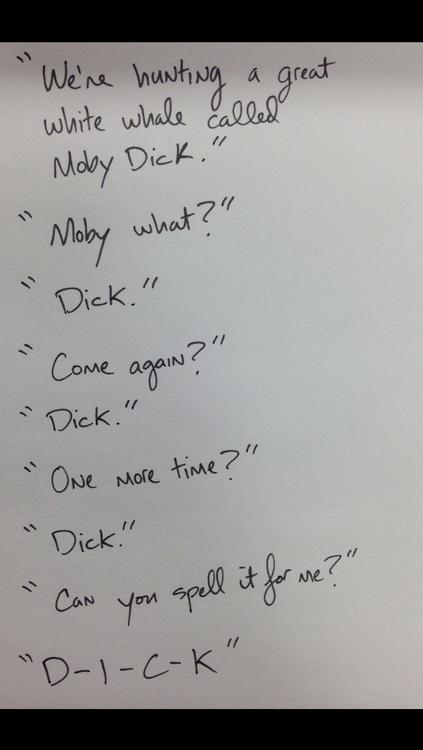 "We're hunting a great
white whale called
Moby Dick."
"Moby what?"
"Dick."
"Come again?"
"Dick."
"One more time?"
"Dick."
"Can you spell it for me?"
"D-I-C-K"